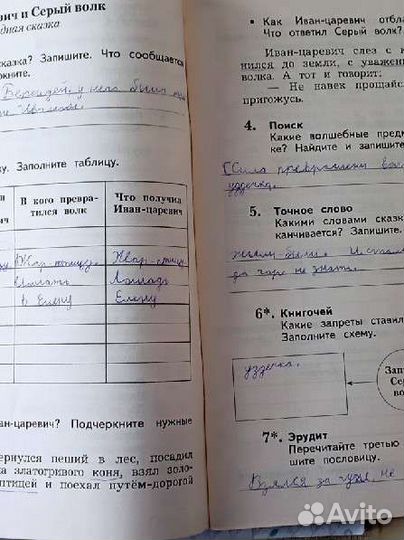 вич и Серый волк
дная сказка
сказка? Запишите. Что сообщается
ркните.
Берендей, у него было
ку. Заполните таблицу.
В кого превра-
тился волк
Что получил
Иван-царевич
Жар-птицу
Жар-птицу
Лошадь
в Елену
Елену
ван-царевич? Подчеркните нужные
вернулся пеший в лес, посадил
а златогривого коня, взял золо-
птицей и поехал путём-дорогой
• Как Иван-царевич отбла
Что ответил Серый волк?
Иван-царевич слез с к
нился до земли, с уважени
волка. А тот и говорит:
— Не навек прощайс
пригожусь.
4. Поиск
Какие волшебные предм
ке? Найдите и запишите
Сила превращения
уздечка.
5. Точное слово
Какими словами сказк
канчивается? Запишите.
жили были.
да горе не знать.
6*. Книгочей
Какие запреты ставил
Заполните схему.
уздечка.
Зап
Сер
во
7*. Эрудит
Перечитайте третью
шите пословицу.
Взялся за гуж, не
Avito